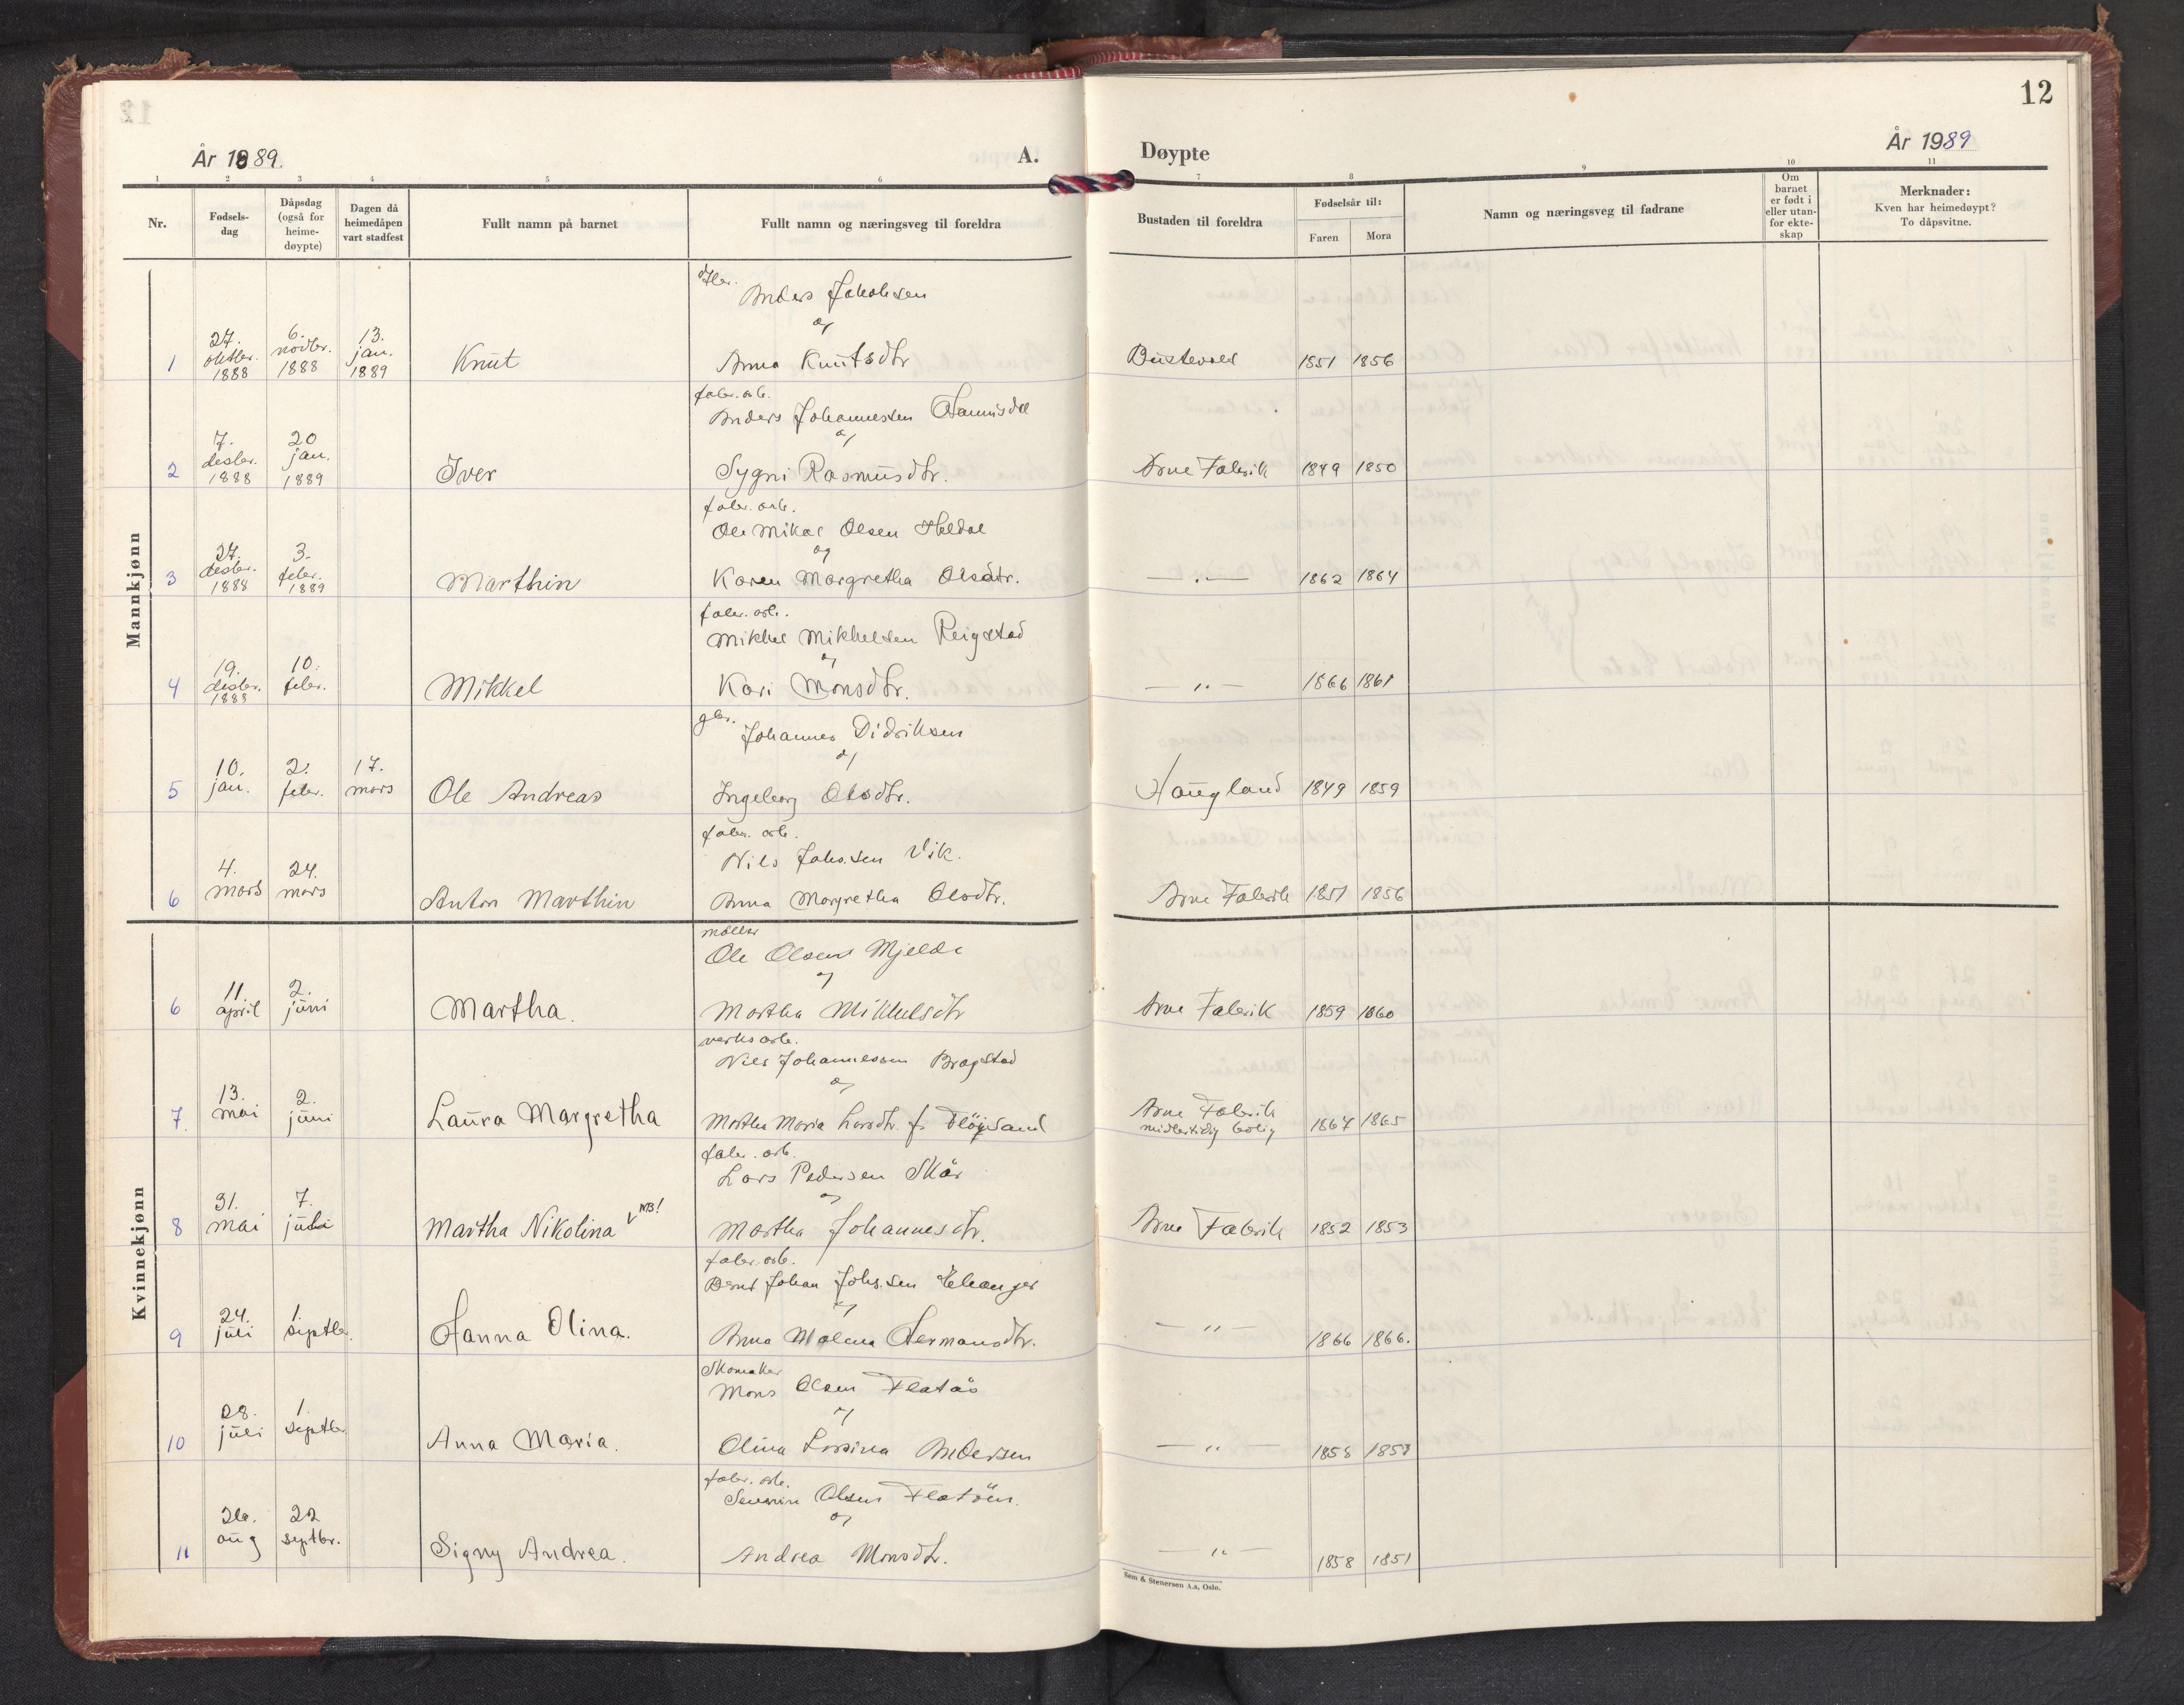 12
År 1889.
A.
Døypte
År 1989
1 2 3 4 5 6 7 8 9 10 11
Nr.
Fødsels-
dag
Dåpsdag
(også for
heime-
døypte)
Dagen då
heimedåpen
vart stadfest
Fullt namn på barnet
Fullt namn og næringsveg til foreldra
Bustaden til foreldra
Fødselsår til:
Faren Mora
Namn og næringsveg til fadrane
Om
barnet
er født i
eller utan-
for ekte-
skap
Merknader:
Kven har heimedøypt?
To dåpsvitne.
Mannkjønn
Anders Jakobsen
og
1 27. oktbr. 1888 6. novbr. 1888 13. jan. 1889 Knut Anna Knutsdtr 1851 1856
fabr. arb.
Anders Johannessen
og
2 7. desbr. 1888 20 jan. 1889 Iver Sygni Rasmusdtr. Arne Fabrik 1849 1850
fabr. arb.
Ole Mikal Olsen Heldal
og
3 27. desbr. 1888 3. febr. 1889 Marthin Karen Margretha Olsdtr. — . — 1862 1864
fabr. arb.
Mikkel Mikkelsen Reigstad
og
4 19. desbr. 1888 10. febr. Mikkel Kari Monsdtr. — " — 1866 1861
gbr.
Johannes Didriksen
og
5 10. jan. 2. febr. 17. mars Ole Andreas Ingeborg Olsdtr. Haugland 1849 1859
fabr. arb.
Nils Johs.sen Vik.
6 4. mars 24. mars Anton Marthin Anna Margretha Olsdtr. Arne Fabrik 1851 1856
Kvinnekjønn
møller
Ole Olsen Mjelde
og
6 11 april 2. juni Martha. Martha Mikkelsdtr Arne Fabrik 1859 1860
verksarb.
Nils Johannessen Brogstad
og
7. 13. mai 2. juni Laura Margretha Martha Maria Larsdtr. f. Fløysand Arne Fabrik midlertidig bolig 1867 1865
fabr. arb.
Lars Pedersen Skår
og
8 31. mai 7. juli Martha Nikolina NB! Martha Johannesdtr. Arne Fabrik 1852 1853
fabr. arb.
Bernt Johan Johs.sen
og
9 24. juli 1. septbr. Hanna Olina. Anna Malena Hermansdtr. — " — 1866 1866.
Skomaker
Mons Olsen Flatås
og
10 28. juli 1. septbr Anna Maria. Olina Andersen — " — 1858 1858
fabr. arb.
Severin Olsen Flatøen.
og
11 26. aug 22 septbr. Signy Andrea. Andrea Monsdtr. — " — 1858 1851
Sem & Stenersen A.s, Oslo.